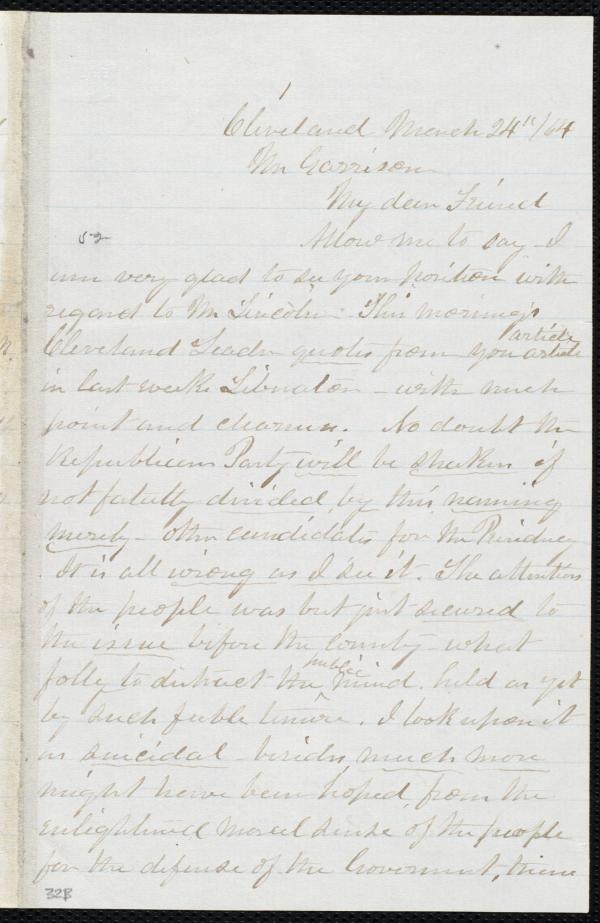 Cleveland March 24th/64
Mr Garrison
My dear Friend
52
Allow me to say - I
am very glad to see your position with
regard to Mr Lincoln - This morning's
article
Cleveland Leader quotes from your article
in last weeks Liberator - with much
point and clearness. No doubt the
Republican Party will be shaken if
not fatally divided by this naming
merely - other candidates for the Presidency
It is all wrong as I see it. The attention
of the people was but just secured to
the issue before the country - what
public
folly to distract the ^ mind held as yet
by such feeble tenure. I look upon it
as suicidal - besides, much more
might have been hoped from the
enlightened moral sense of the people
for the defense of the Government,
32B